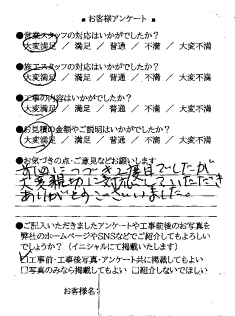 ■お客様アンケート■
●営業スタッフの対応はいかがでしたか?
大変満足 / 満足 / 普通 / 不満 / 大変不満
●施工スタッフの対応はいかがでしたか?
大変満足 / 満足 / 普通 / 不満 / 大変不満
●工事の内容はいかがでしたか?
大変満足 / 満足 / 普通 / 不満 / 大変不満
●お見積の金額やご説明はいかがでしたか?
大変満足 / 満足 / 普通 / 不満 / 大変不満
●お気づきの点・ご意見などお願いします
前回につづき2度目でしたが
大変親切に対応していただき
ありがとうございました。
●ご記入いただきましたアンケートや工事前後のお写真を
弊社のホームページやSNSなどでご紹介してもよろしい
でしょうか?(イニシャルにて掲載いたします)
☑工事前・工事後写真・アンケート共に掲載してもよい
□写真のみなら掲載してもよい □紹介しないでほしい
お客様名: